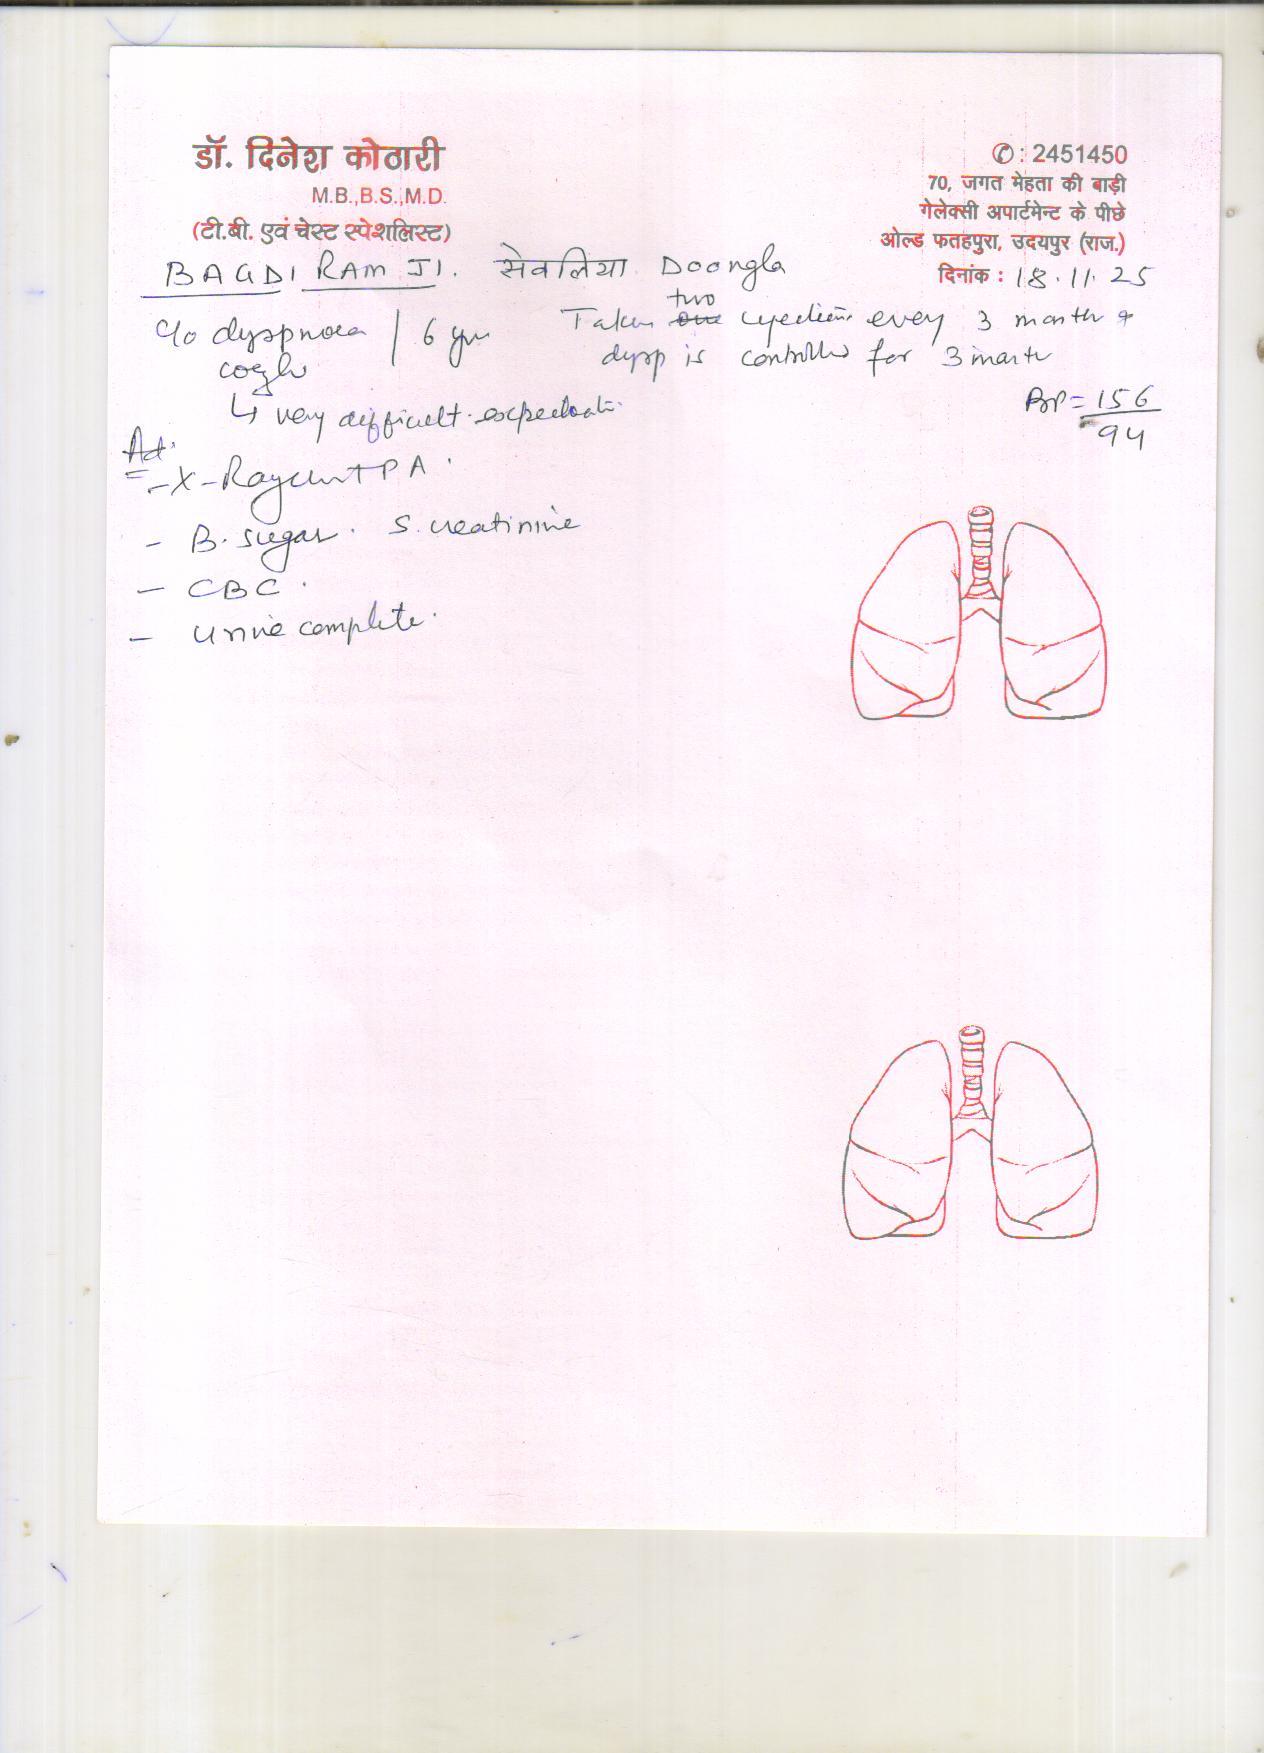 डॉ. दिनेश कोठारी
M.B.,B.S.,M.D.
(टी.बी. एवं चेस्ट स्पेशलिस्ट)
✆ : 2451450
70, जगत मेहता की बाड़ी
गेलेक्सी अपार्टमेन्ट के पीछे
ओल्ड फतहपुरा, उदयपुर (राज.)
दिनांक : 18.11.25
BAGDI RAM JI. सेवलिया Doongla
C/o dyspnoea / 6 yrs
cough
↳ very difficult expectorati
Taken two injections every 3 month &
dysp is controlled for 3 month
BP = 156/94
Ad.
- X-Ray chest PA.
- B. sugar. S. creatinine
- CBC.
- Urine complete.